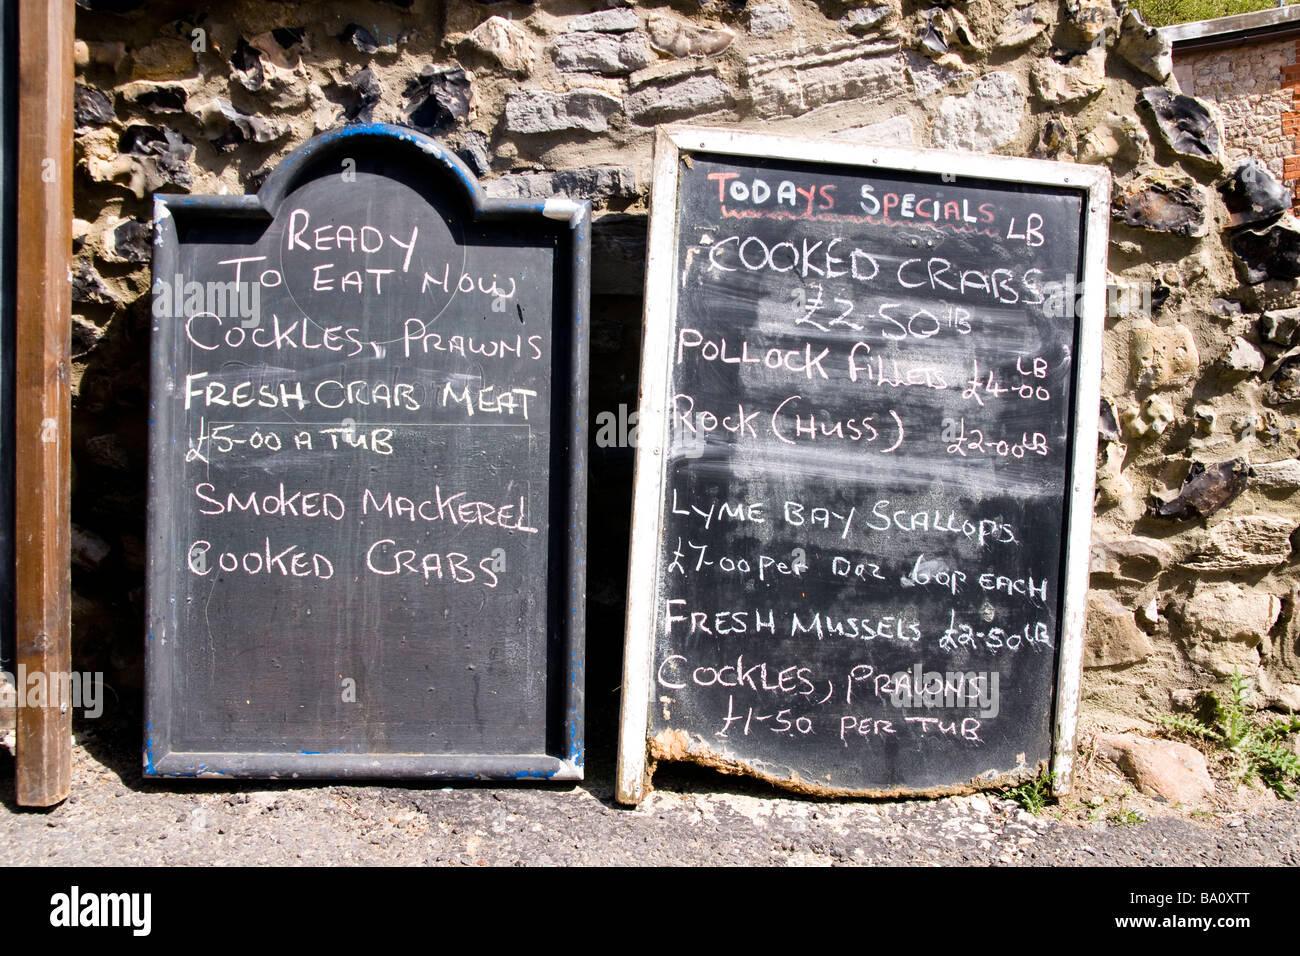 READY
TO EAT NOW
COCKLES, PRAWNS
FRESH CRAB MEAT
£5-00 A TUB
SMOKED MACKEREL
COOKED CRABS
TODAYS SPECIALS
LB
COOKED CRABS
£2-50 LB
POLLOCK FILLETS £4-00 LB
ROCK (HUSS) £2-00 LB
LYME BAY SCALLOPS
£7-00 PER DOZ 60P EACH
FRESH MUSSELS £2-50 LB
COCKLES, PRAWNS
£1-50 PER TUB
alamy
Image ID: BA0XTT
www.alamy.com